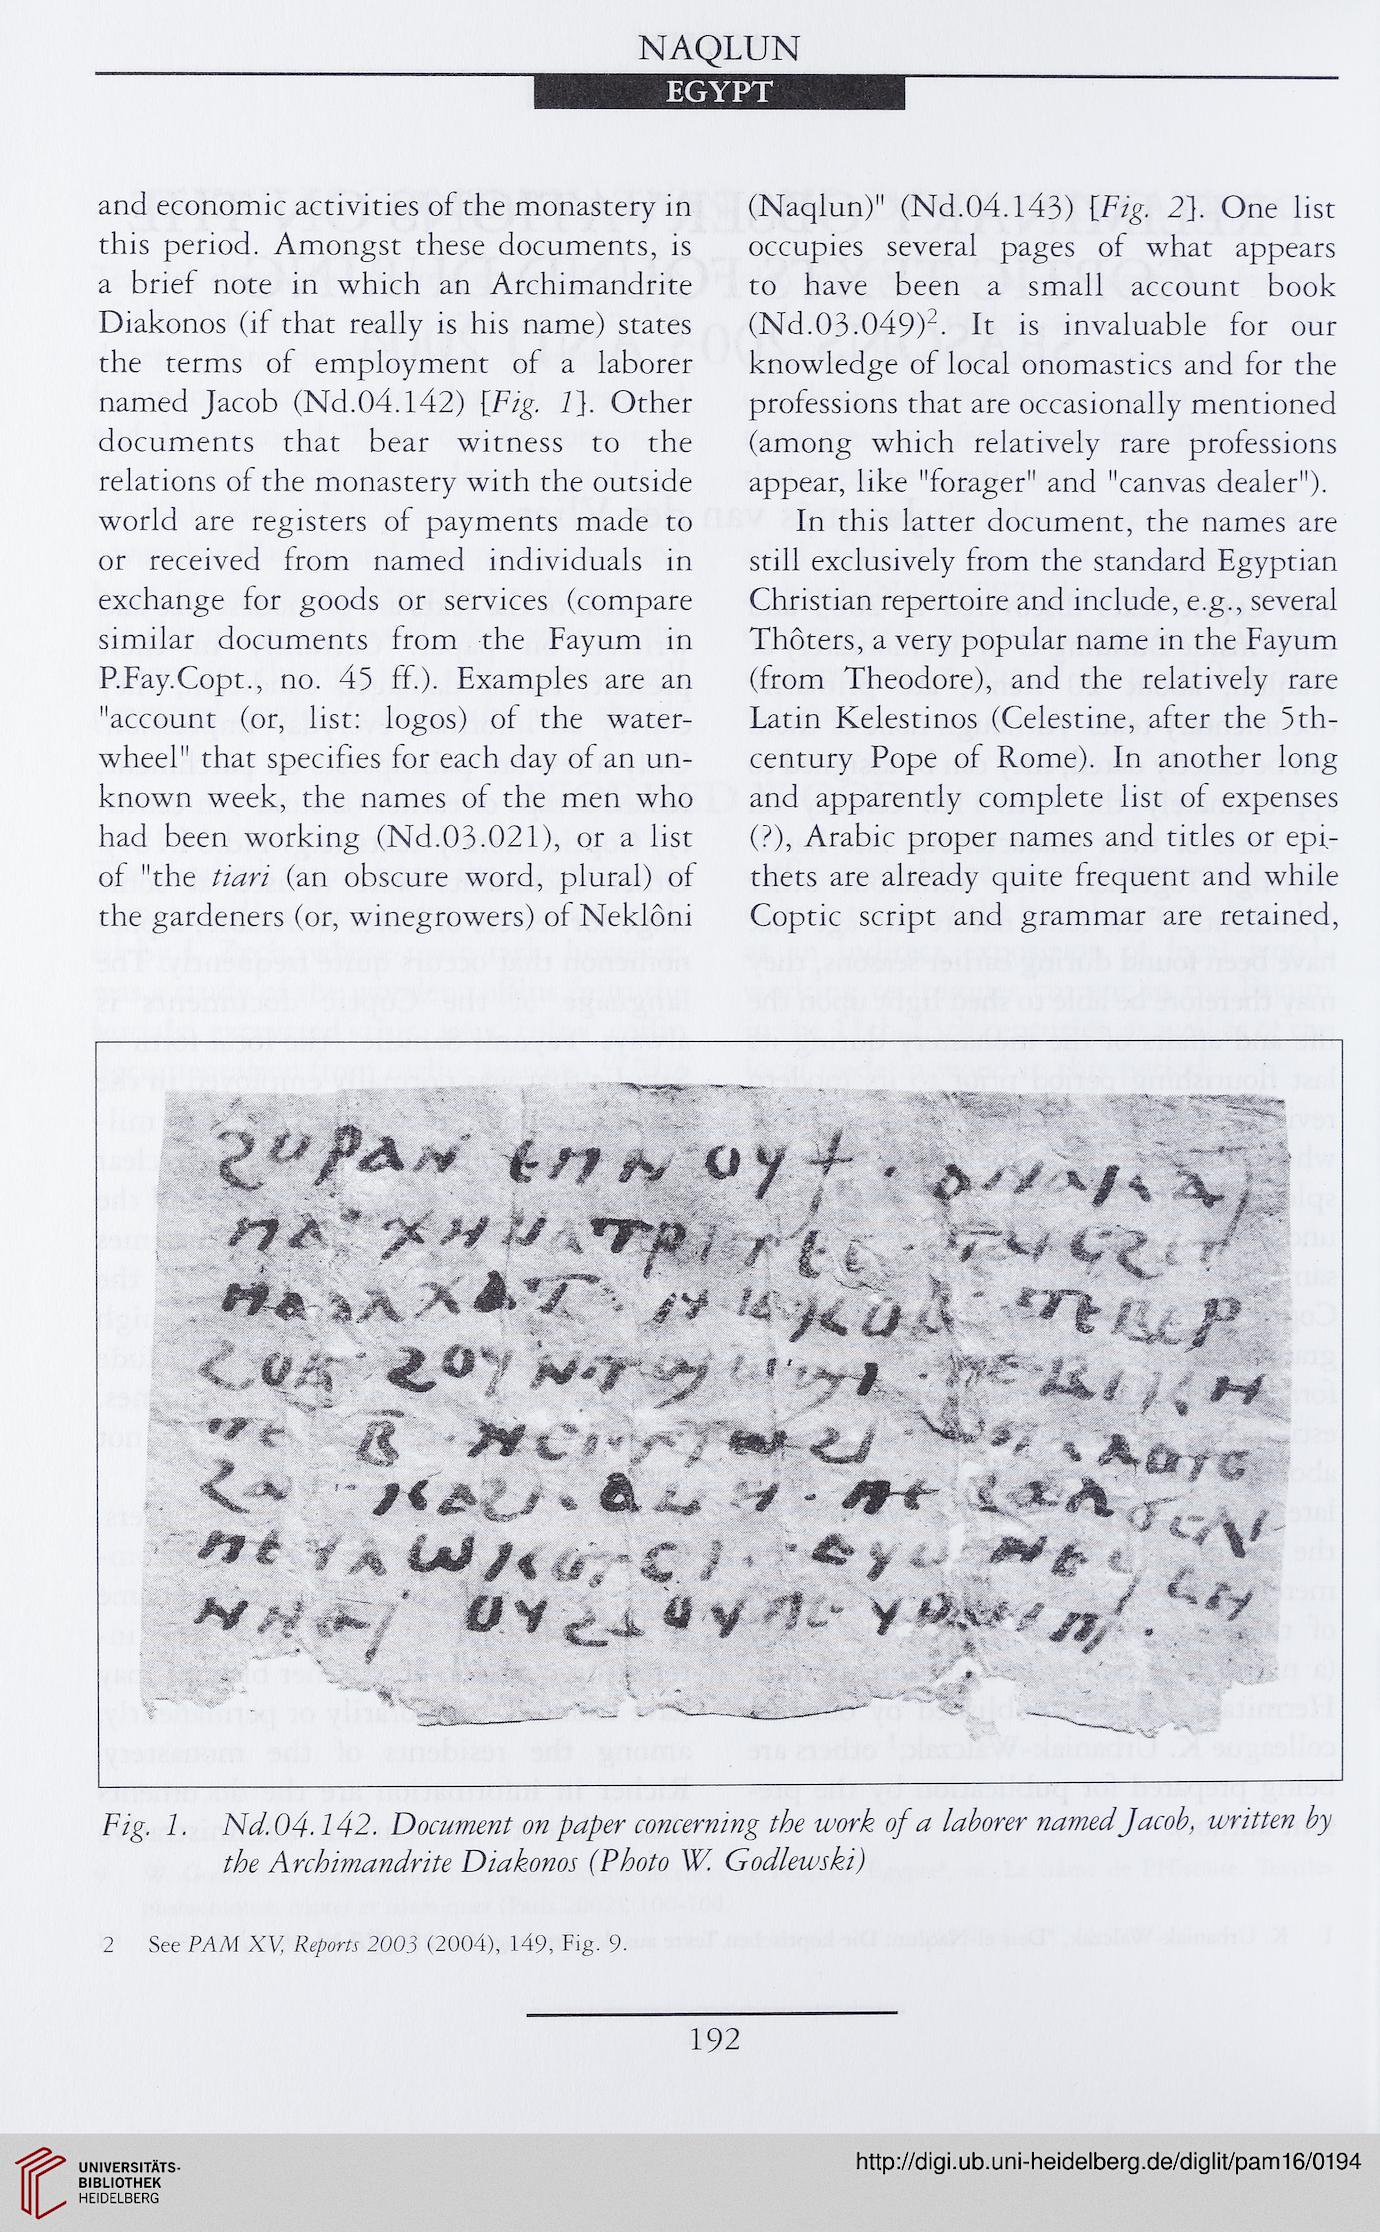 NAQLUN
EGYPT
and economic activities of the monastery in
this period. Amongst these documents, is
a brief note in which an Archimandrite
Diakonos (if that really is his name) states
the terms of employment of a laborer
named Jacob (Nd.04.142) [Fig. 1]. Other
documents that bear witness to the
relations of the monastery with the outside
world are registers of payments made to
or received from named individuals in
exchange for goods or services (compare
similar documents from the Fayum in
P.Fay.Copt., no. 45 ff.). Examples are an
"account (or, list: logos) of the water-
wheel" that specifies for each day of an un-
known week, the names of the men who
had been working (Nd.03.021), or a list
of "the tiari (an obscure word, plural) of
the gardeners (or, winegrowers) of Neklôni
(Naqlun)" (Nd.04.143) [Fig. 2]. One list
occupies several pages of what appears
to have been a small account book
(Nd.03.049)2. It is invaluable for our
knowledge of local onomastics and for the
professions that are occasionally mentioned
(among which relatively rare professions
appear, like "forager" and "canvas dealer").
In this latter document, the names are
still exclusively from the standard Egyptian
Christian repertoire and include, e.g., several
Thôters, a very popular name in the Fayum
(from Theodore), and the relatively rare
Latin Kelestinos (Celestine, after the 5th-
century Pope of Rome). In another long
and apparently complete list of expenses
(?), Arabic proper names and titles or epi-
thets are already quite frequent and while
Coptic script and grammar are retained,
ϩⲩⲣⲁⲛ ⲉⲡⲛⲟⲩϯ
Fig. 1. Nd.04.142. Document on paper concerning the work of a laborer named Jacob, written by
the Archimandrite Diakonos (Photo W. Godlewski)
2 See PAM XV, Reports 2003 (2004), 149, Fig. 9.
192
UNIVERSITÄTS-
BIBLIOTHEK
HEIDELBERG
http://digi.ub.uni-heidelberg.de/diglit/pam16/0194